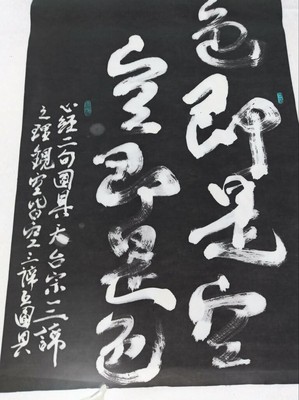 色即是空
空即是色
心経二句圓具天台宗三諦
之理觀空皆空三諦互圓具